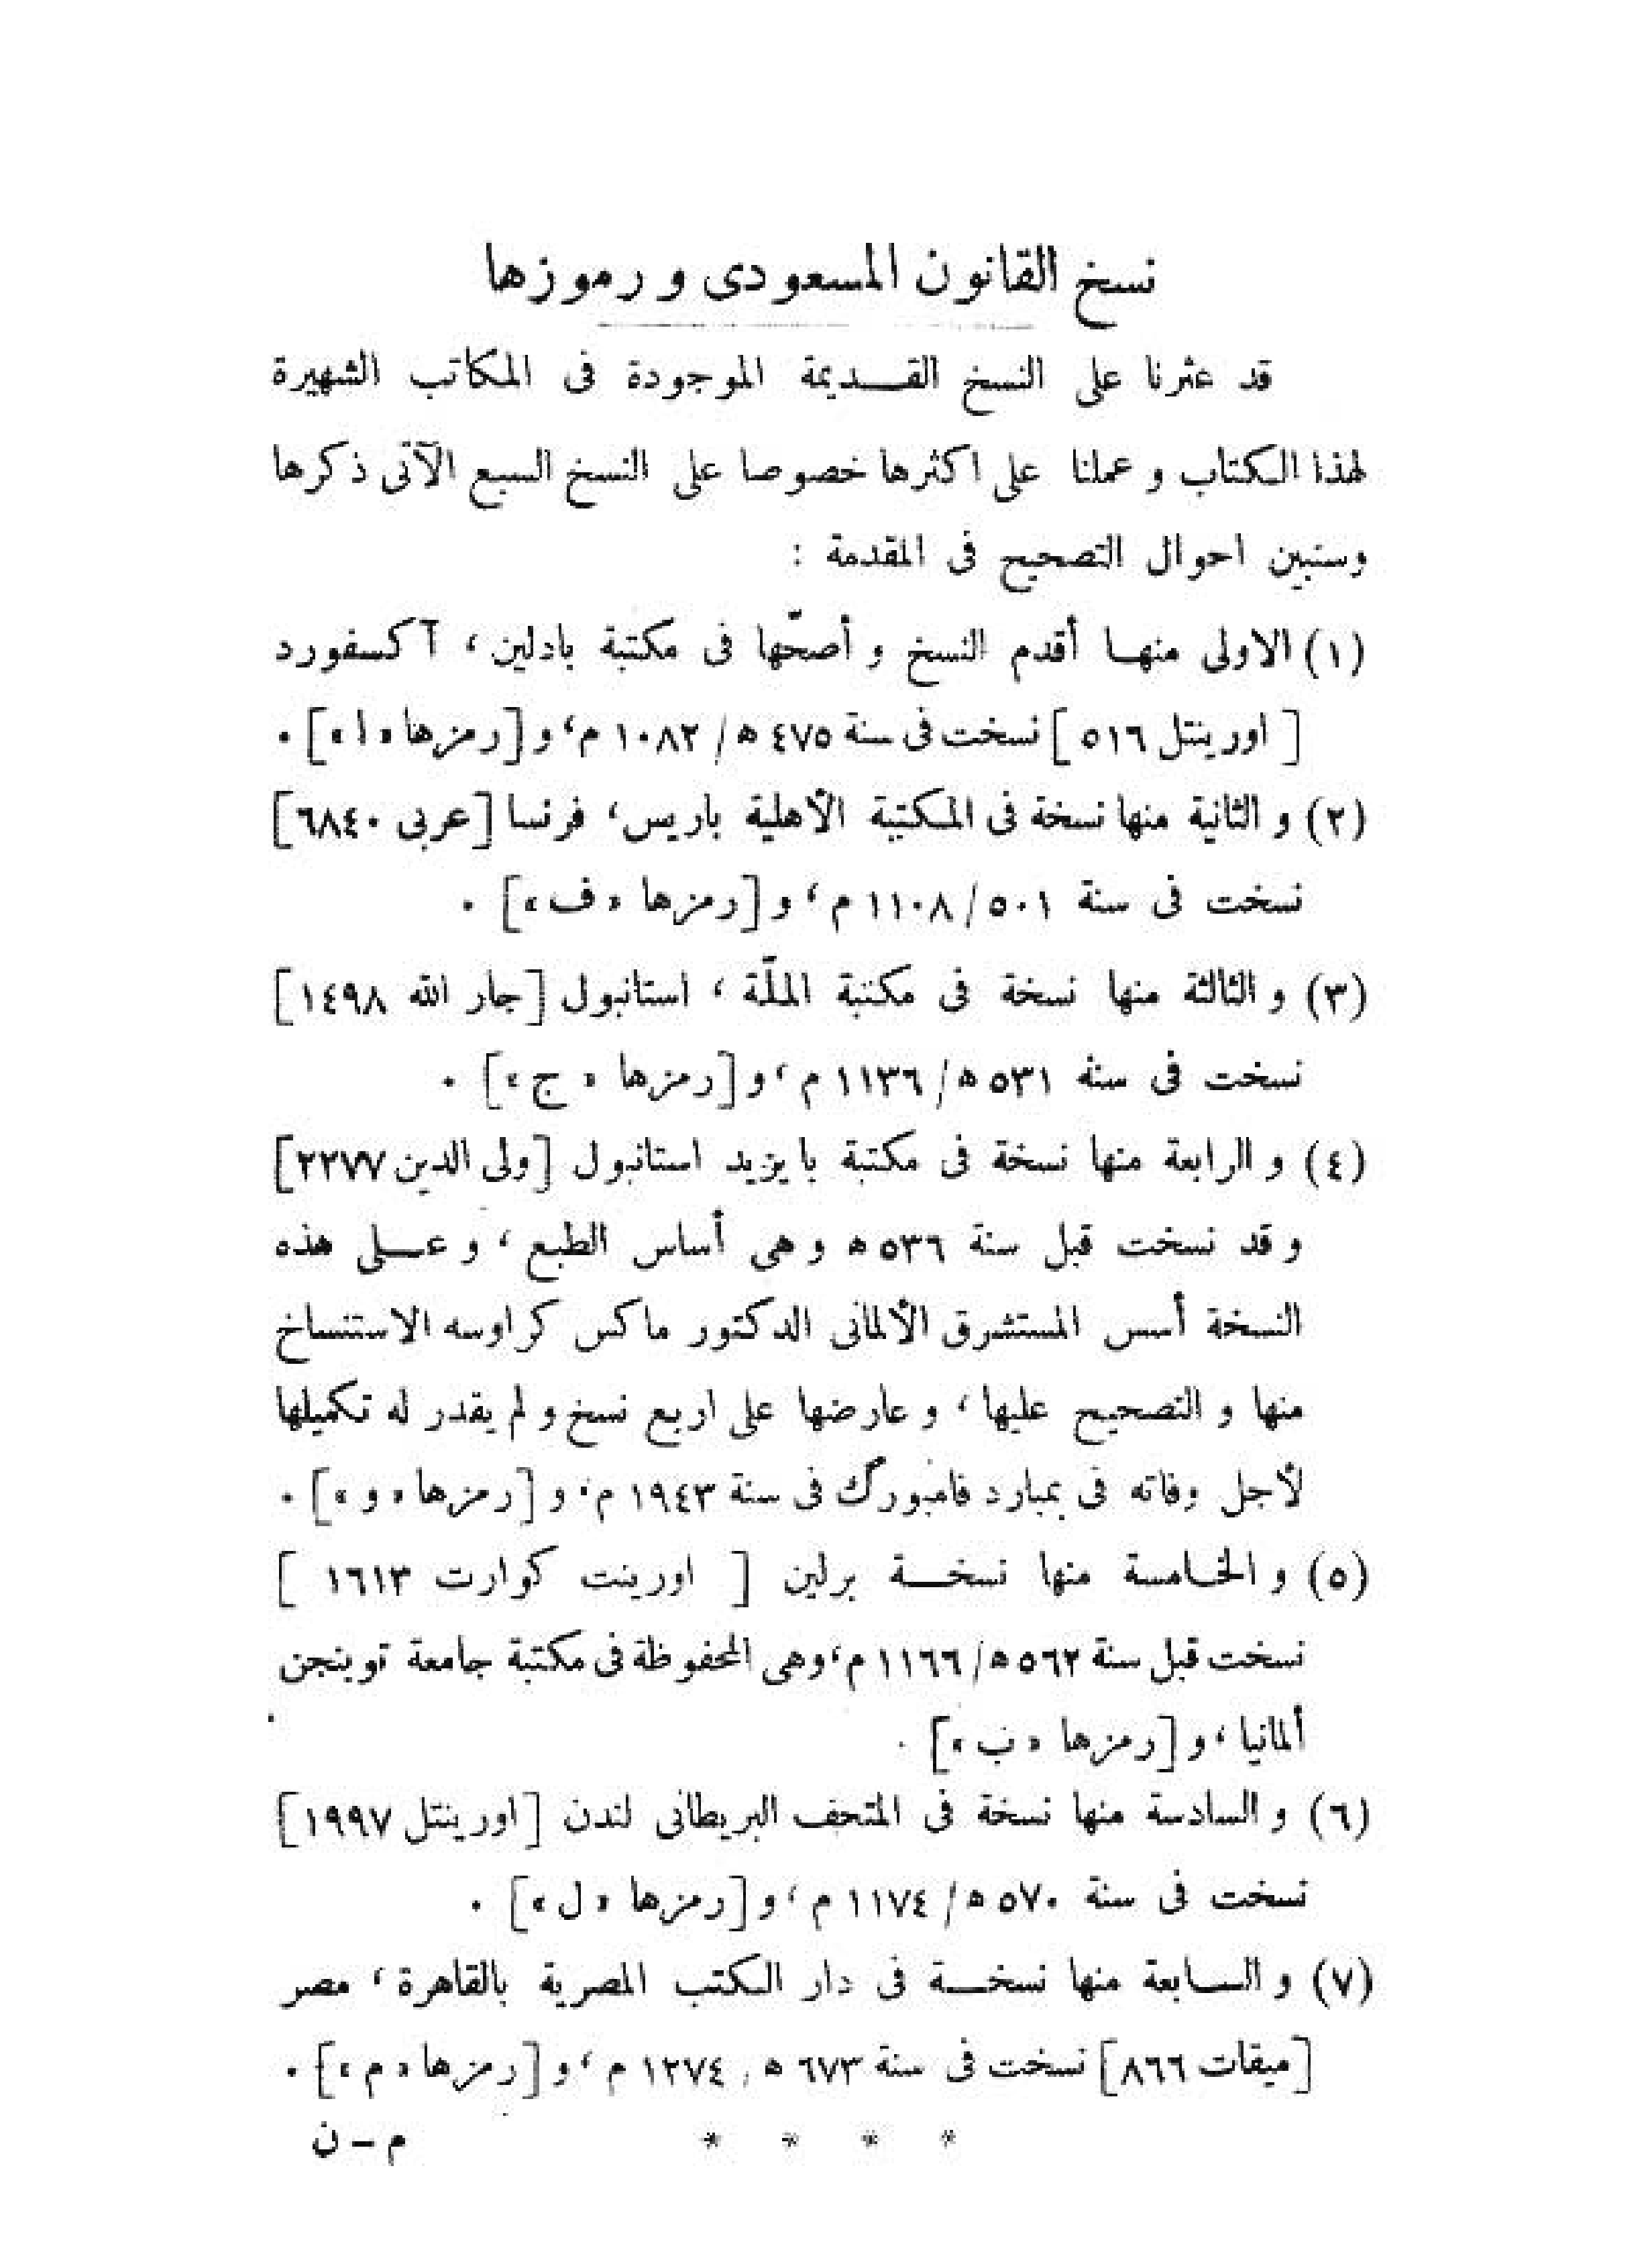 نسخ القانون المسعودى و رموزها
قد عثرنا على النسخ القـــديمة الموجودة فى المكاتب الشهيرة
لهذا الكتاب و عملنا على اكثرها خصوصا على النسخ السبع الآتى ذكرها
وسنبين احوال التصحيح فى المقدمة :
(١) الاولى منهـا أقدم النسخ و أصحّها فى مكتبة بادلين ، آكسفورد
[ اورينتل ٥١٦ ] نسخت فى سنة ٤٧٥ ه / ١٠٨٢ م، و [رمزها « ا »] .
(٢) و الثانية منها نسخة فى المكتبة الأهلية باريس، فرنسا [عربى ٦٨٤٠]
نسخت فى سنة ٥٠١ / ١١٠٨ م ، و [رمزها « ف »] .
(٣) و الثالثة منها نسخة فى مكتبة الملّة ، استانبول [جار الله ١٤٩٨]
نسخت فى سنة ٥٣١ ه / ١١٣٦ م ، و [رمزها « ج »] .
(٤) و الرابعة منها نسخة فى مكتبة بايزيد استانبول [ولى الدين ٢٢٧٧]
و قد نسخت قبل سنة ٥٣٦ ه و هى أساس الطبع ، و عـــلى هذه
النسخة أسس المستشرق الألمانى الدكتور ماكس كراوسه الاستنساخ
منها و التصحيح عليها ، و عارضها على اربع نسخ و لم يقدر له تكميلها
لأجل وفاته فى بمبارد فامبورگ فى سنة ١٩٤٣ م، و [رمزها « و »] .
(٥) و الخـامسة منها نسخـــة برلين [ اورينت كوارت ١٦١٣ ]
نسخت قبل سنة ٥٦٢ ه / ١١٦٦ م، وهى المحفوظة فى مكتبة جامعة توبنجن
ألمانيا ، و [رمزها « ب »] .
(٦) و السادسة منها نسخة فى المتحف البريطانى لندن [اورينتل ١٩٩٧]
نسخت فى سنة ٥٧٠ ه / ١١٧٤ م ، و [رمزها « ل »] .
(٧) و الســابعة منها نسخـــة فى دار الكتب المصرية بالقاهرة ، مصر
[ميقات ٨٦٦] نسخت فى سنة ٦٧٣ ه / ١٢٧٤ م ، و [رمزها « م »] .
* * * * م – ن